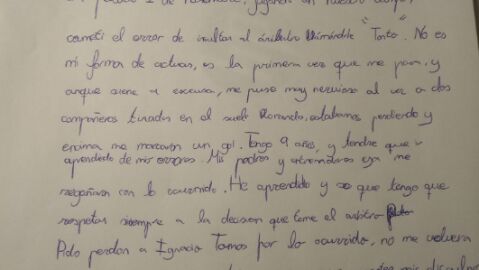 jugando en nuestro campo,
cometí el error de insultar al árbitro llamándole "Tonto". No es
mi forma de actuar, es la primera vez que me pasa, y
aunque sirve a excusa, me puse muy nervioso al ver a dos
compañeros tirados en el suelo llorando, estabamos perdiendo y
encima me marcaron un gol. Tengo 9 años, y tendre que
aprendiendo de mis errores. Mis padres y entrenadores ya me
regañaron con lo ocurrido. He aprendido y se que tengo que
respetar siempre a la decision que tome el arbitro
Pido perdon a Ignacio Tamos por lo ocurrido, no me volvera